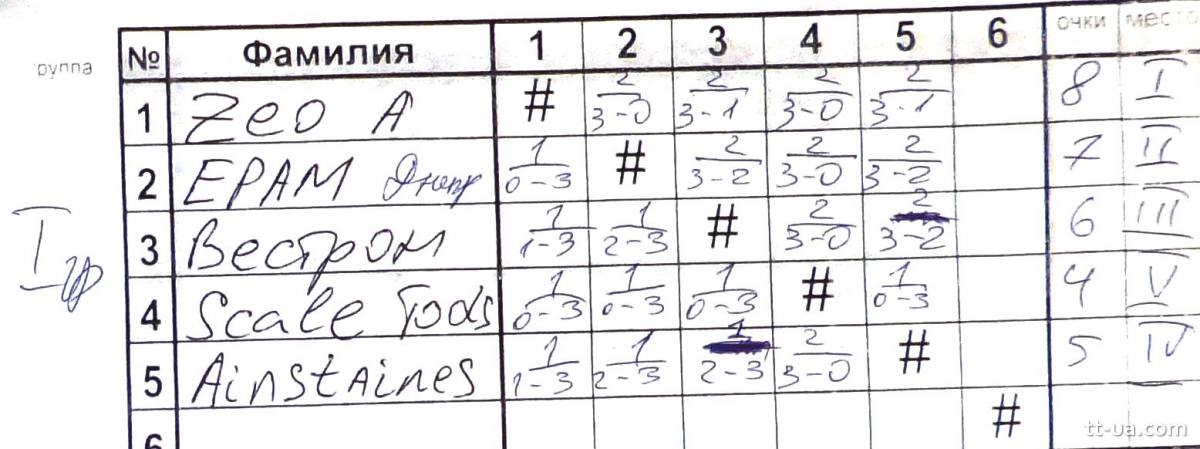 № Фамилия 1 2 3 4 5 6 очки место
руппа
1 Zeo A # 2/3-0 2/3-1 2/3-0 2/3-1 8 I
2 EPAM Днепр 1/0-3 # 2/3-2 2/3-0 2/3-2 7 II
I гр
3 Вестром 1/1-3 1/2-3 # 2/3-0 2/3-2 6 III
4 Scale Tods 1/0-3 1/0-3 1/0-3 # 1/0-3 4 V
5 Ainstaines 1/1-3 1/2-3 1/2-3 2/3-0 # 5 IV
6 #
tt-ua.com